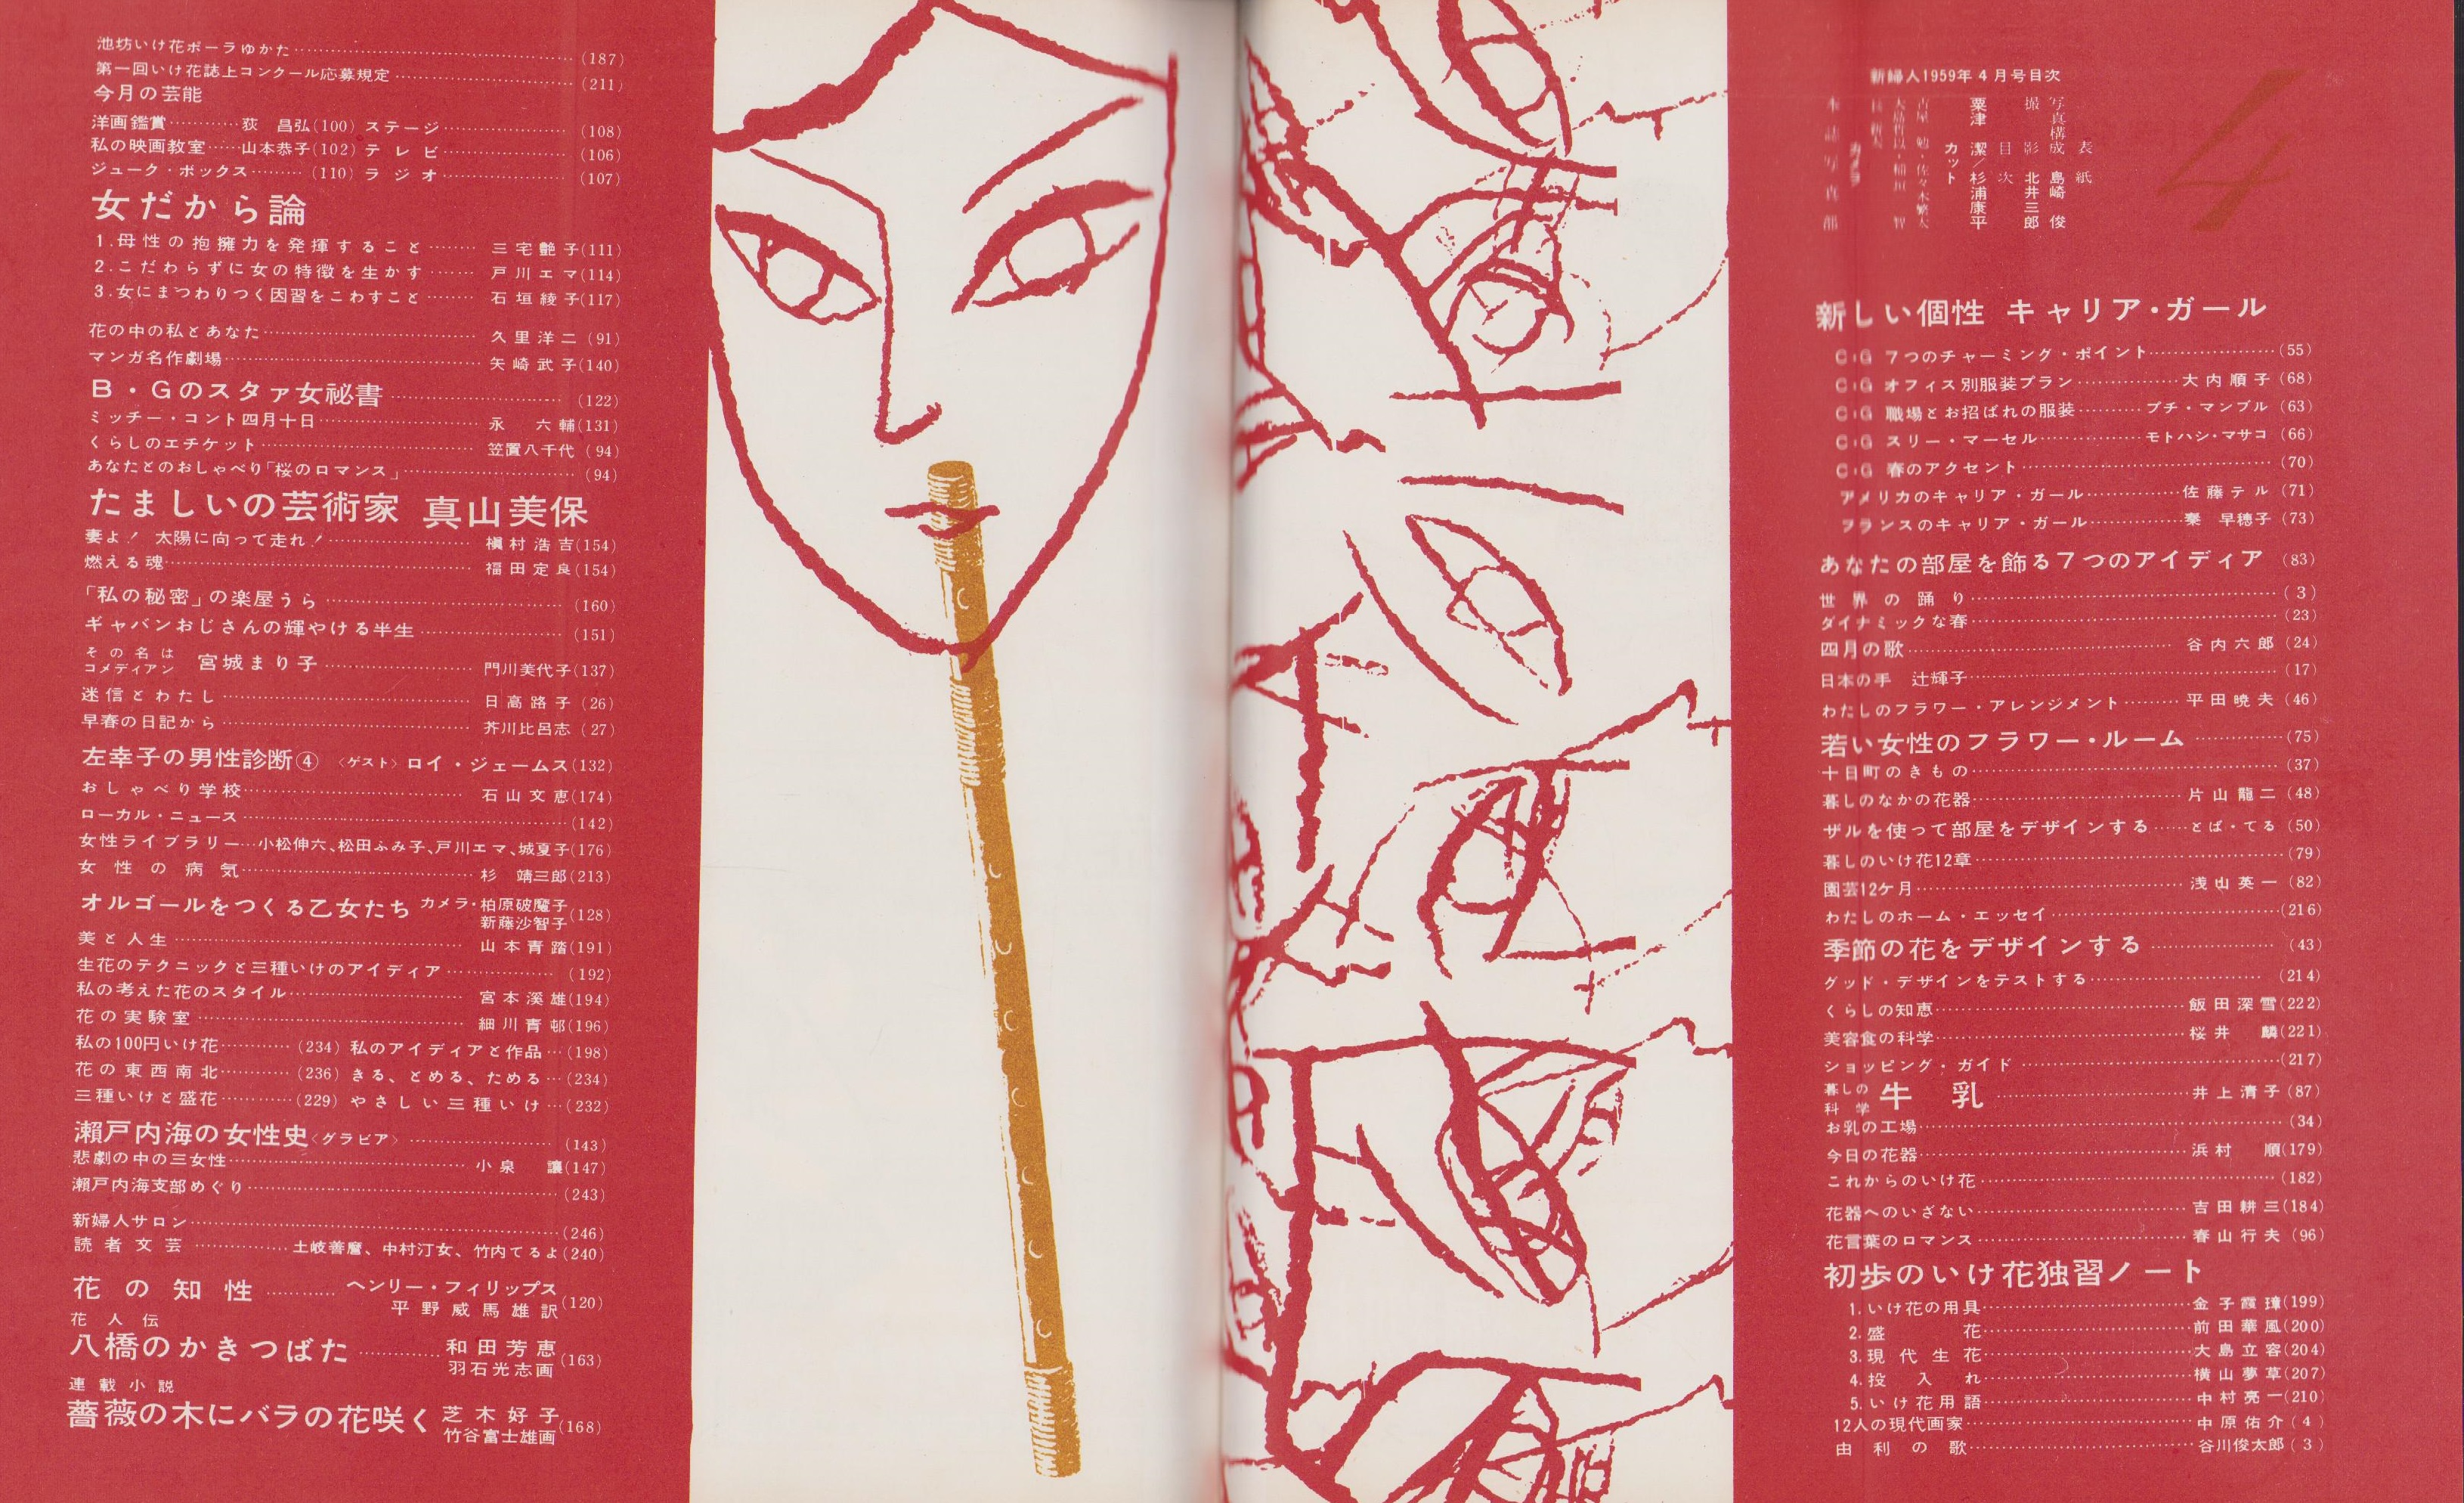 新婦人1959年4月号目次
4
表紙 島崎 俊
写真構成
撮影 北井三郎
目次
粟津 潔／杉浦康平
カット
古屋 勉・佐々木繁太
カメラ
本誌写真部
新しい個性 キャリア・ガール
C・G 7つのチャーミング・ポイント (55)
C・G オフィス別服装プラン 大内順子 (68)
C・G 職場とお招ばれの服装 プチ・マンブル (63)
C・G スリー・マーセル モトハシ・マサコ (66)
C・G 春のアクセント (70)
アメリカのキャリア・ガール 佐藤テル (71)
フランスのキャリア・ガール 秦 早穂子 (73)
あなたの部屋を飾る7つのアイディア (83)
世界の踊り (3)
ダイナミックな春 (23)
四月の歌 谷内六郎 (24)
日本の手 辻輝子 (17)
わたしのフラワー・アレンジメント 平田暁夫 (46)
若い女性のフラワー・ルーム (75)
十日町のきもの (37)
暮しのなかの花器 片山龍二 (48)
ザルを使って部屋をデザインする とば・てる (50)
暮しのいけ花12章 (79)
園芸12ケ月 浅山英一 (82)
わたしのホーム・エッセイ (216)
季節の花をデザインする (43)
グッド・デザインをテストする (214)
くらしの知恵 飯田深雪 (222)
美容食の科学 桜井 麟 (221)
ショッピング・ガイド (217)
暮しの科学 牛乳 井上清子 (87)
お乳の工場 (34)
今日の花器 浜村 順 (179)
これからのいけ花 (182)
花器へのいざない 吉田耕三 (184)
花言葉のロマンス 春山行夫 (96)
初歩のいけ花独習ノート
1. いけ花の用具 金子霞璋 (199)
2. 盛花 前田華風 (200)
3. 現代生花 大島立容 (204)
4. 投入れ 横山夢草 (207)
5. いけ花用語 中村亮一 (210)
12人の現代画家 中原佑介 (4)
由利の歌 谷川俊太郎 (3)
池坊いけ花ポーラゆかた (187)
第一回いけ花誌上コンクール応募規定 (211)
今月の芸能
洋画鑑賞 荻 昌弘 (100) ステージ (108)
私の映画教室 山本恭子 (102) テレビ (106)
ジューク・ボックス (110) ラジオ (107)
女だから論
1. 母性の抱擁力を発揮すること 三宅艶子 (111)
2. こだわらずに女の特徴を生かす 戸川エマ (114)
3. 女にまつわりつく因習をこわすこと 石垣綾子 (117)
花の中の私とあなた 久里洋二 (91)
マンガ名作劇場 矢崎武子 (140)
B・Gのスタァ女祕書 (122)
ミッチー・コント四月十日 永 六輔 (131)
くらしのエチケット 笠置八千代 (94)
あなたとのおしゃべり「桜のロマンス」 (94)
たましいの芸術家 真山美保
妻よ！ 太陽に向って走れ！ 槇村浩吉 (154)
燃える魂 福田定良 (154)
「私の秘密」の楽屋うら (160)
ギャバンおじさんの輝やける半生 (151)
その名はコメディアン 宮城まり子 門川美代子 (137)
迷信とわたし 日高路子 (26)
早春の日記から 芥川比呂志 (27)
左幸子の男性診断④ 〈ゲスト〉ロイ・ジェームス (132)
おしゃべり学校 石山文恵 (174)
ローカル・ニュース (142)
女性ライブラリー 小松伸六、松田ふみ子、戸川エマ、城夏子 (176)
女性の病気 杉 靖三郎 (213)
オルゴールをつくる乙女たち カメラ・柏原破魔子 新藤沙智子 (128)
美と人生 山本青踏 (191)
生花のテクニックと三種いけのアイディア (192)
私の考えた花のスタイル 宮本溪雄 (194)
花の実験室 細川青邨 (196)
私の100円いけ花 (234) 私のアイディアと作品 (198)
花の東西南北 (236) きる、とめる、ためる (234)
三種いけと盛花 (229) やさしい三種いけ (232)
瀬戸内海の女性史〈グラビア〉 (143)
悲劇の中の三女性 小泉 譲 (147)
瀬戸内海支部めぐり (243)
新婦人サロン (246)
読者文芸 土岐善麿、中村汀女、竹内てるよ (240)
花の知性 ヘンリー・フィリップス 平野威馬雄訳 (120)
花人伝
八橋のかきつばた 和田芳恵 羽石光志画 (163)
連載小説
薔薇の木にバラの花咲く 芝木好子 竹谷富士雄画 (168)